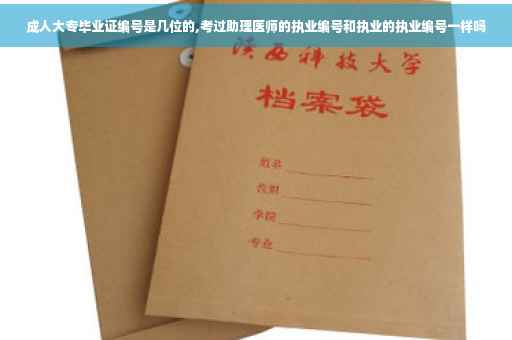 成人大专毕业证编号是几位的,考过助理医师的执业编号和执业的执业编号一样吗
陕西科技大学
档案袋
姓名
学院
专业